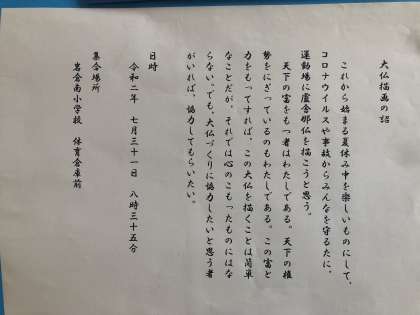 大仏描画の詔
これから始まる夏休み中を楽しいものにして、
コロナウイルスや事故からみんなを守るたに、
運動場に盧舎那仏を描こうと思う。
天下の富をもつ者はわたしである。天下の権
勢をにぎっているのもわたしである。この富と
力をもってすれば、この大仏を描くことは簡単
なことだが、それでは心のこもったものにはな
らない。でも、大仏づくりに協力したいと思う者
がいれば、協力してもらいたい。
日時
令和二年 七月三十一日 八時三十五分
集合場所
岩倉南小学校 体育倉庫前